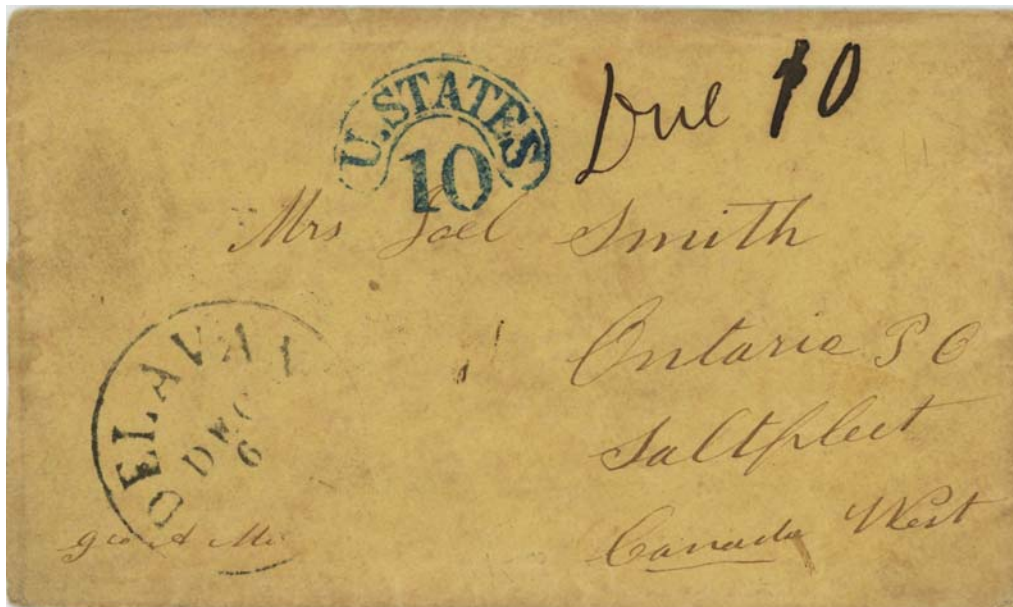 U.STATES
10
Due 10
Mrs Joel Smith
Ontario P O
Saltfleet
Canada West
DELAVAN
DEC
6